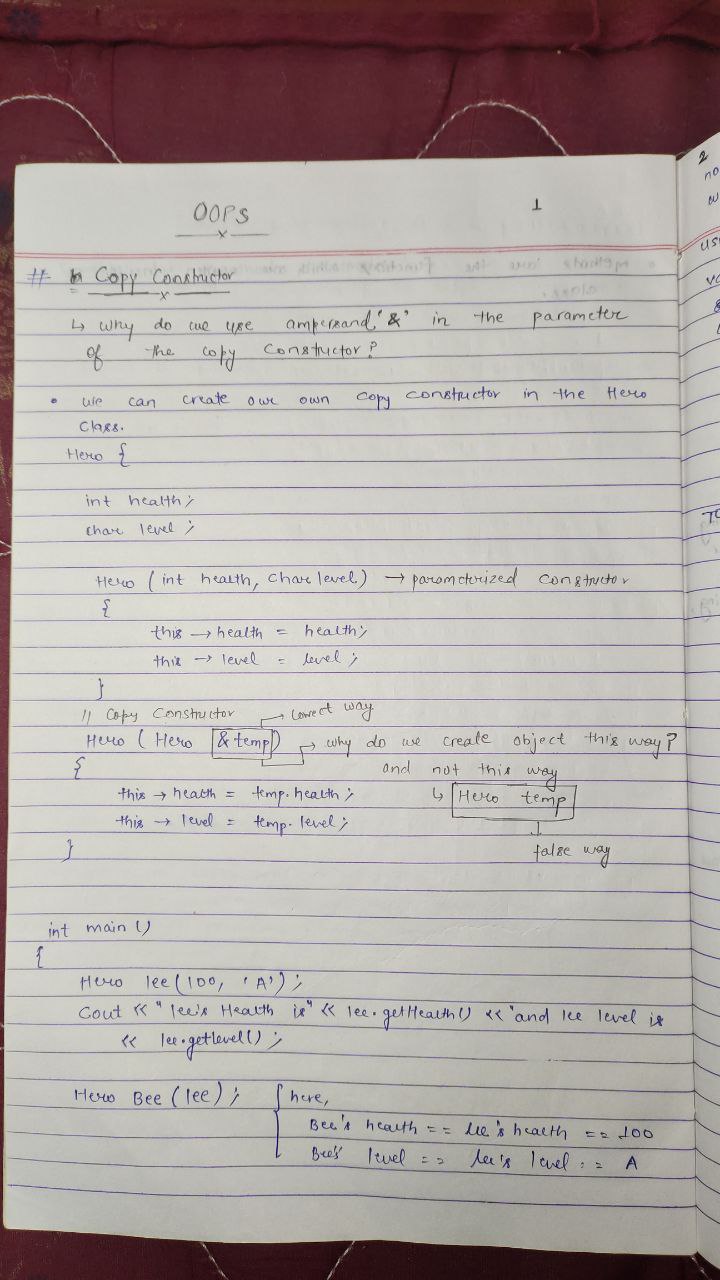 OOPS
1
# Copy Constructor
↳ why do we use ampersand '&' in the parameter
of the copy constructor?
• we can create our own copy constructor in the Hero
class.
Hero {
int health;
char level;
Hero (int health, char level) → parameterized constructor
{
this → health = health;
this → level = level;
}
// Copy Constructor → correct way
Hero ( Hero & temp) → why do we create object this way?
{ and not this way
this → health = temp.health; ↳ Hero temp
this → level = temp.level;
} false way
int main ()
{
Hero lee (100, 'A');
Cout << "lee's Health is" << lee.getHealth() << "and lee level is
<< lee.getlevel();
Hero Bee (lee); { here,
Bee's health == lee's health == 100
Bee's level == lee's level == A
2